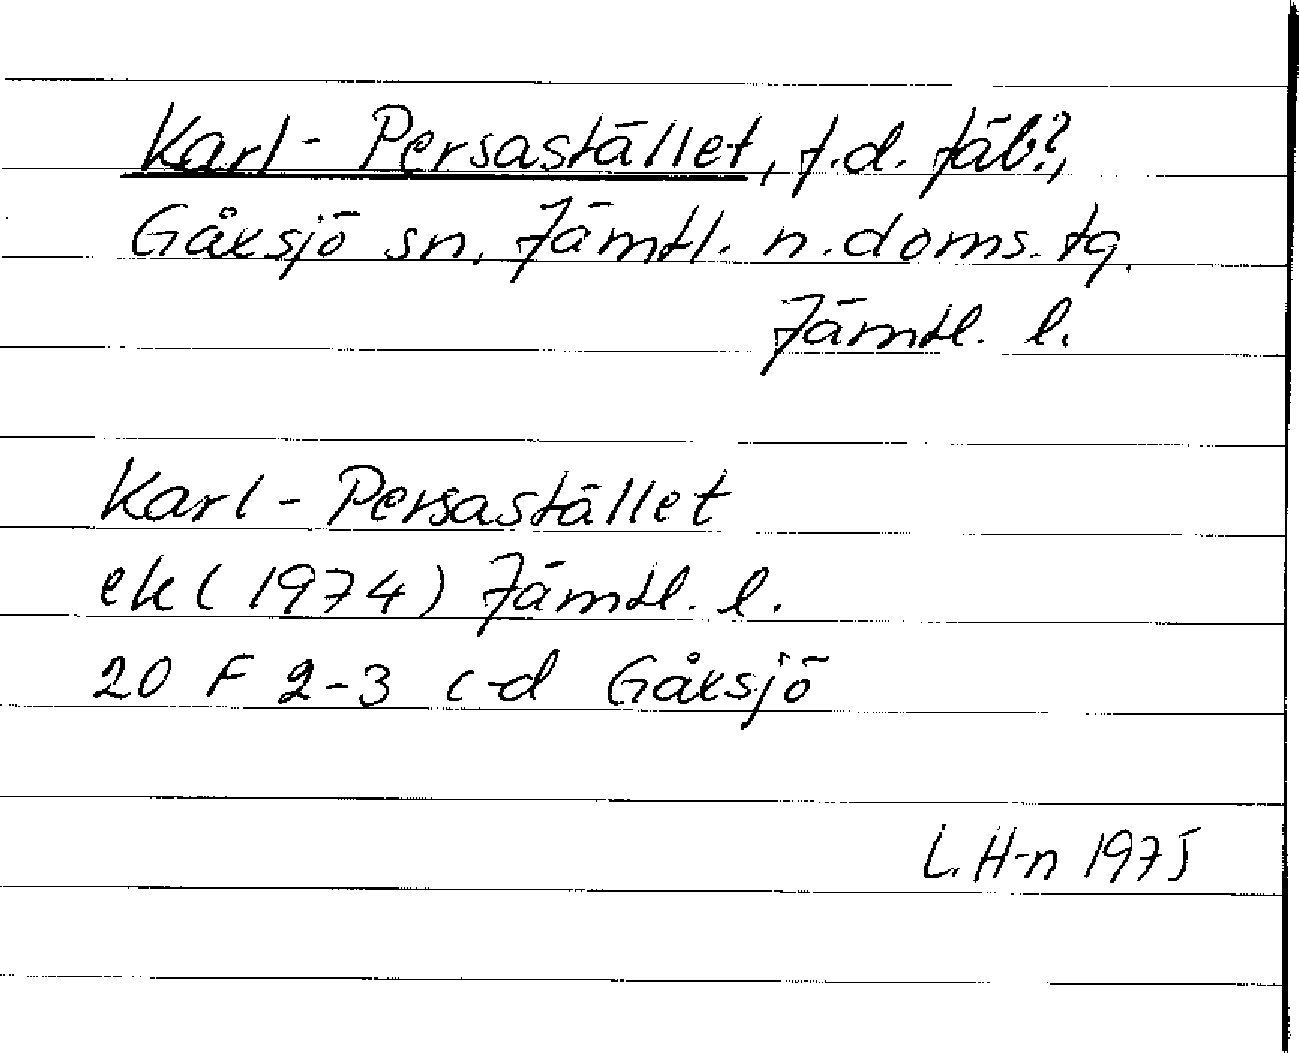 Karl-Persastället, f.d. fäb?,
Gåxsjö sn, Jämtl. n. doms. tg.
Jämtl. l.
Karl-Persastället
ek (1974) Jämtl. l.
20 F 2-3 c-d Gåxsjö
L. H-n 1975